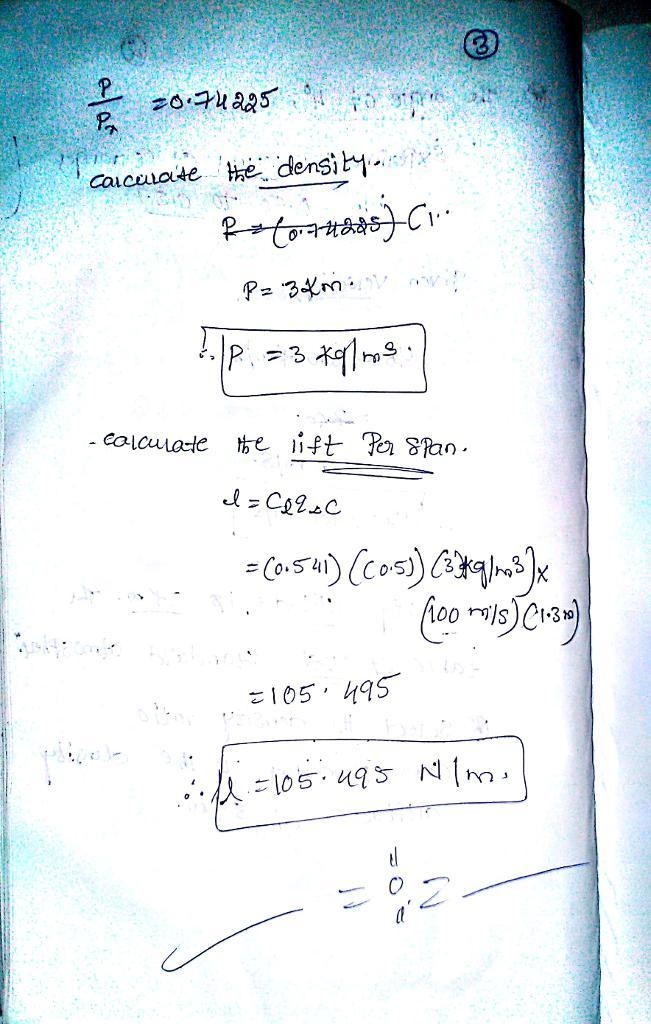 3
P
Pₓ = 0.74225
calculate the density.
P = (0.74225) (1..
P = 3 Km.
∴ P = 3 kg/m³.
- calculate the lift Per span.
l = Cₗq∞C
= (0.541) ((0.5)) (3 kg/m³) x
(100 m/s) (1.3m)
= 105.495
∴ l = 105.495 N/m.